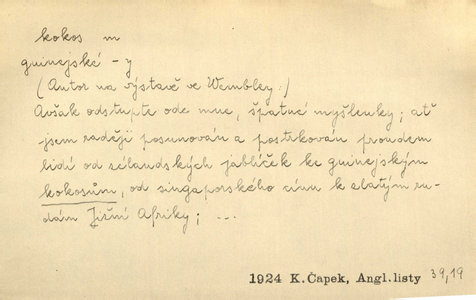 kokos m
guinejské -y
(Autor na výstavě ve Wembley:)
Avšak odstupte ode mne, špatné myšlenky; ať
jsem raději posunován a postrkován proudem
lidí od zélandských jablíček ke guinejským
kokosům, od singaporského cínu k zlatým ru-
dám Jižní Afriky; ...
1924 K.Čapek, Angl.listy 39,19